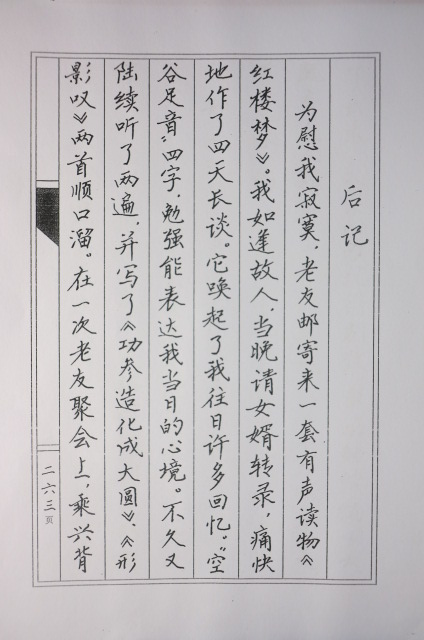 后记
为慰我寂寞，老友邮寄来一套有声读物《
红楼梦》。我如逢故人，当晚请女婿转录，痛快
地作了四天长谈。它唤起了我往日许多回忆。“空
谷足音”四字，勉强能表达我当日的心境。不久又
陆续听了两遍，并写了《功参造化成大圆》、《形
影叹》两首顺口溜。在一次老友聚会上，乘兴背
二六三页